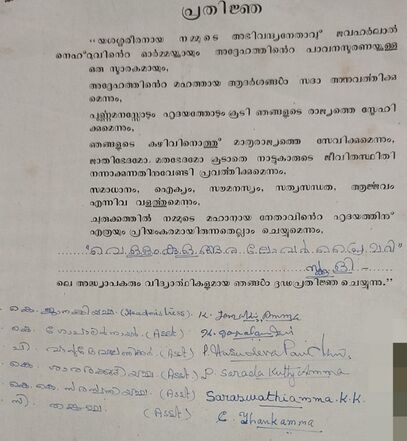 പ്രതിജ്ഞ
“യശശ്ശരീരനായ നമ്മുടെ അഭിവന്ദ്യനേതാവു് ജവഹർലാൽ
നെഹ്റുവിന്റെ ഓർമ്മയ്ക്കായും അദ്ദേഹത്തിന്റെ പാവനസ്മരണയ്ക്കുള്ള
ഒരു സ്മാരകമായും,
അദ്ദേഹത്തിന്റെ മഹത്തായ ആദർശങ്ങൾ സദാ അനുവർത്തിക്കു
മെന്നും,
പൂർണ്ണമനസ്സോടും ഹൃദയത്തോടും കൂടി ഞങ്ങളുടെ രാജ്യത്തെ സ്നേഹി
ക്കുമെന്നും,
ഞങ്ങളുടെ കഴിവിനൊത്തു് മാതൃരാജ്യത്തെ സേവിക്കുമെന്നും,
ജാതിഭേദമോ മതഭേദമോ കൂടാതെ നാട്ടുകാരുടെ ജീവിതസ്ഥിതി
നന്നാക്കുന്നതിനുവേണ്ടി പ്രവർത്തിക്കുമെന്നും,
സമാധാനം, ഐക്യം, സൗമനസ്യം, സത്യസന്ധത, ആർജ്ജവം
എന്നിവ വളർത്തുമെന്നും,
ചുരുക്കത്തിൽ നമ്മുടെ മഹാനായ നേതാവിന്റെ ഹൃദയത്തിന്
എത്രയും പ്രിയങ്കരമായിരുന്നതെല്ലാം ചെയ്യുമെന്നും,
ലോവർ പ്രൈമറി
ലെ അദ്ധ്യാപകരും വിദ്യാർത്ഥികളുമായ ഞങ്ങൾ ദൃഢപ്രതിജ്ഞ ചെയ്യുന്നു.”
കെ. ജാനകിയമ്മ (Headmistress) K. Janaki Amma
കെ. ഗോപാലൻനായർ (Asst) K. Gopalan Nair
പി. (Asst) P. Vasudeva Panicker
(Asst) P. Sarada Kutty Amma
കെ. കെ. സരസ്വതിയമ്മ (Asst) Saraswathiamma. K. K.
സി. തങ്കമ്മ (Asst) C. Thankamma